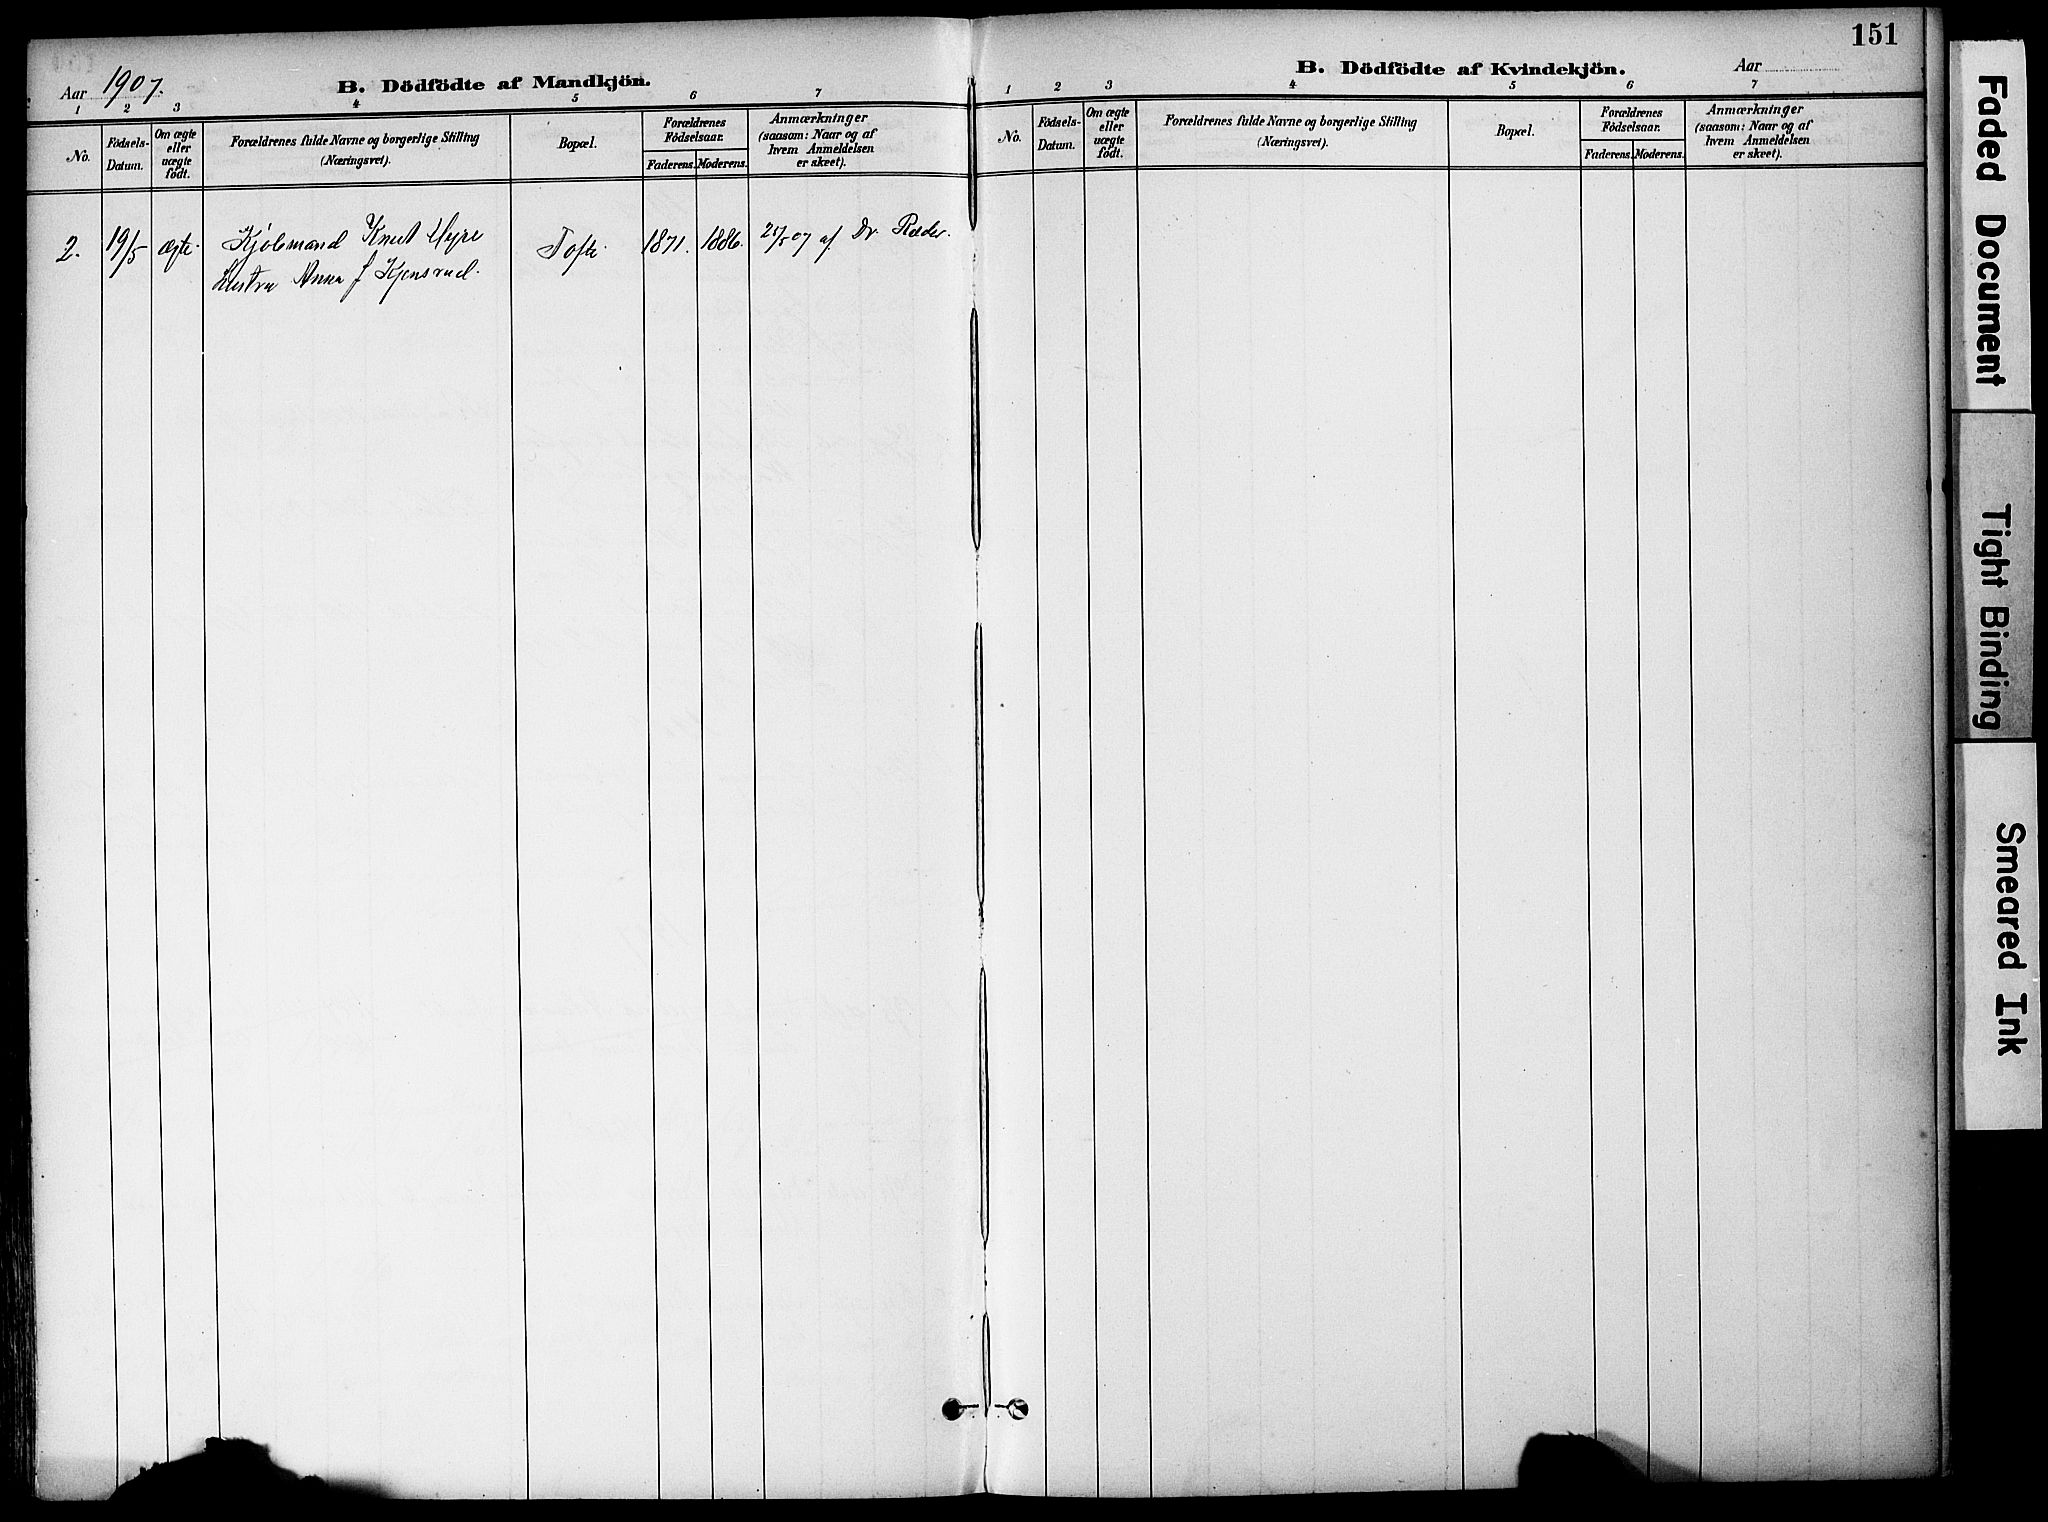 Aar 1907.
B. Dödfödte af Mandkjön.
1 2 3 4 5 6 7
No.
Födsels-
Datum.
Om ægte
eller
uægte
födt.
Forældrenes fulde Navne og borgerlige Stilling
(Næringsvei).
Bopæl.
Forældrenes
Födselsaar.
Faderens. Moderens.
Anmærkninger
(saasom: Naar og af
hvem Anmeldelsen
er skeet).
2. 19/5 ægte. Kjølsmand Knut Højre Tofte 1871. 1886. /5 07 af Dr. Ræder.
Hustru Anna f Kjensrud.
151
B. Dödfödte af Kvindekjön.
Aar
1 2 3 4 5 6 7
No.
Födsels-
Datum.
Om ægte
eller
uægte
födt.
Forældrenes fulde Navne og borgerlige Stilling
(Næringsvei).
Bopæl.
Forældrenes
Födselsaar.
Faderens. Moderens.
Anmærkninger
(saasom: Naar og af
hvem Anmeldelsen
er skeet).
Faded Document
Tight Binding
Smeared Ink